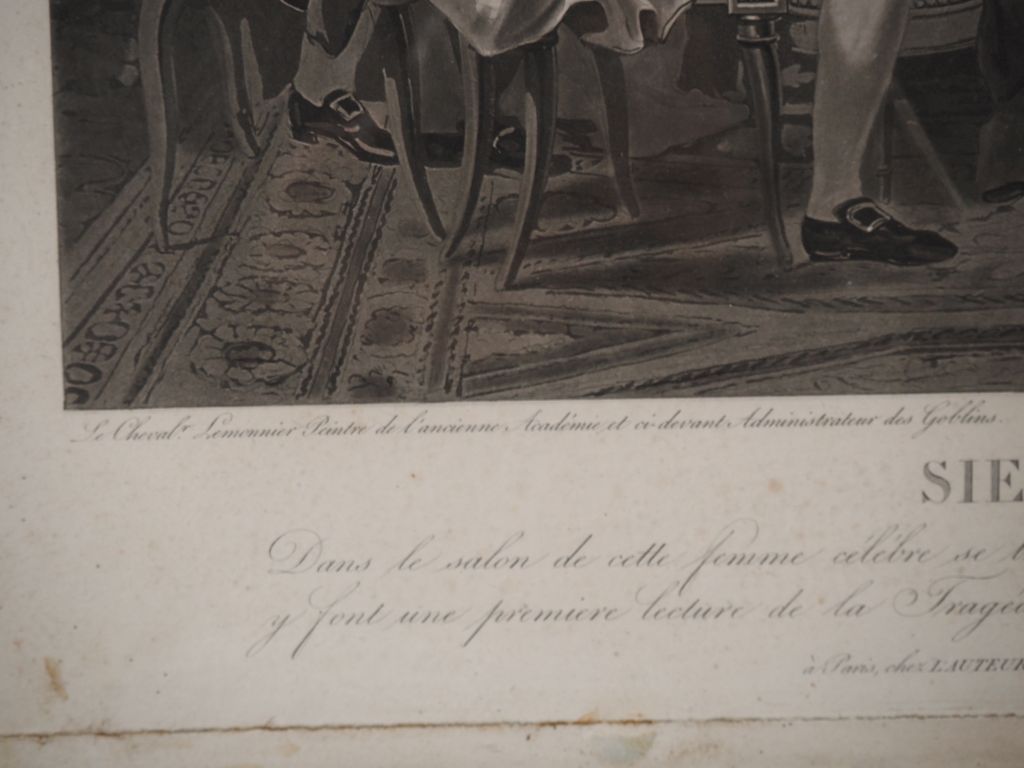 Le Cheval.r Lemonnier Peintre de l'ancienne Académie et ci-devant Administrateur des Goblins.
SIE
Dans le salon de cette femme célébre se
y font une premiere lecture de la Tragéd
à Paris, chez L'AUTEUR